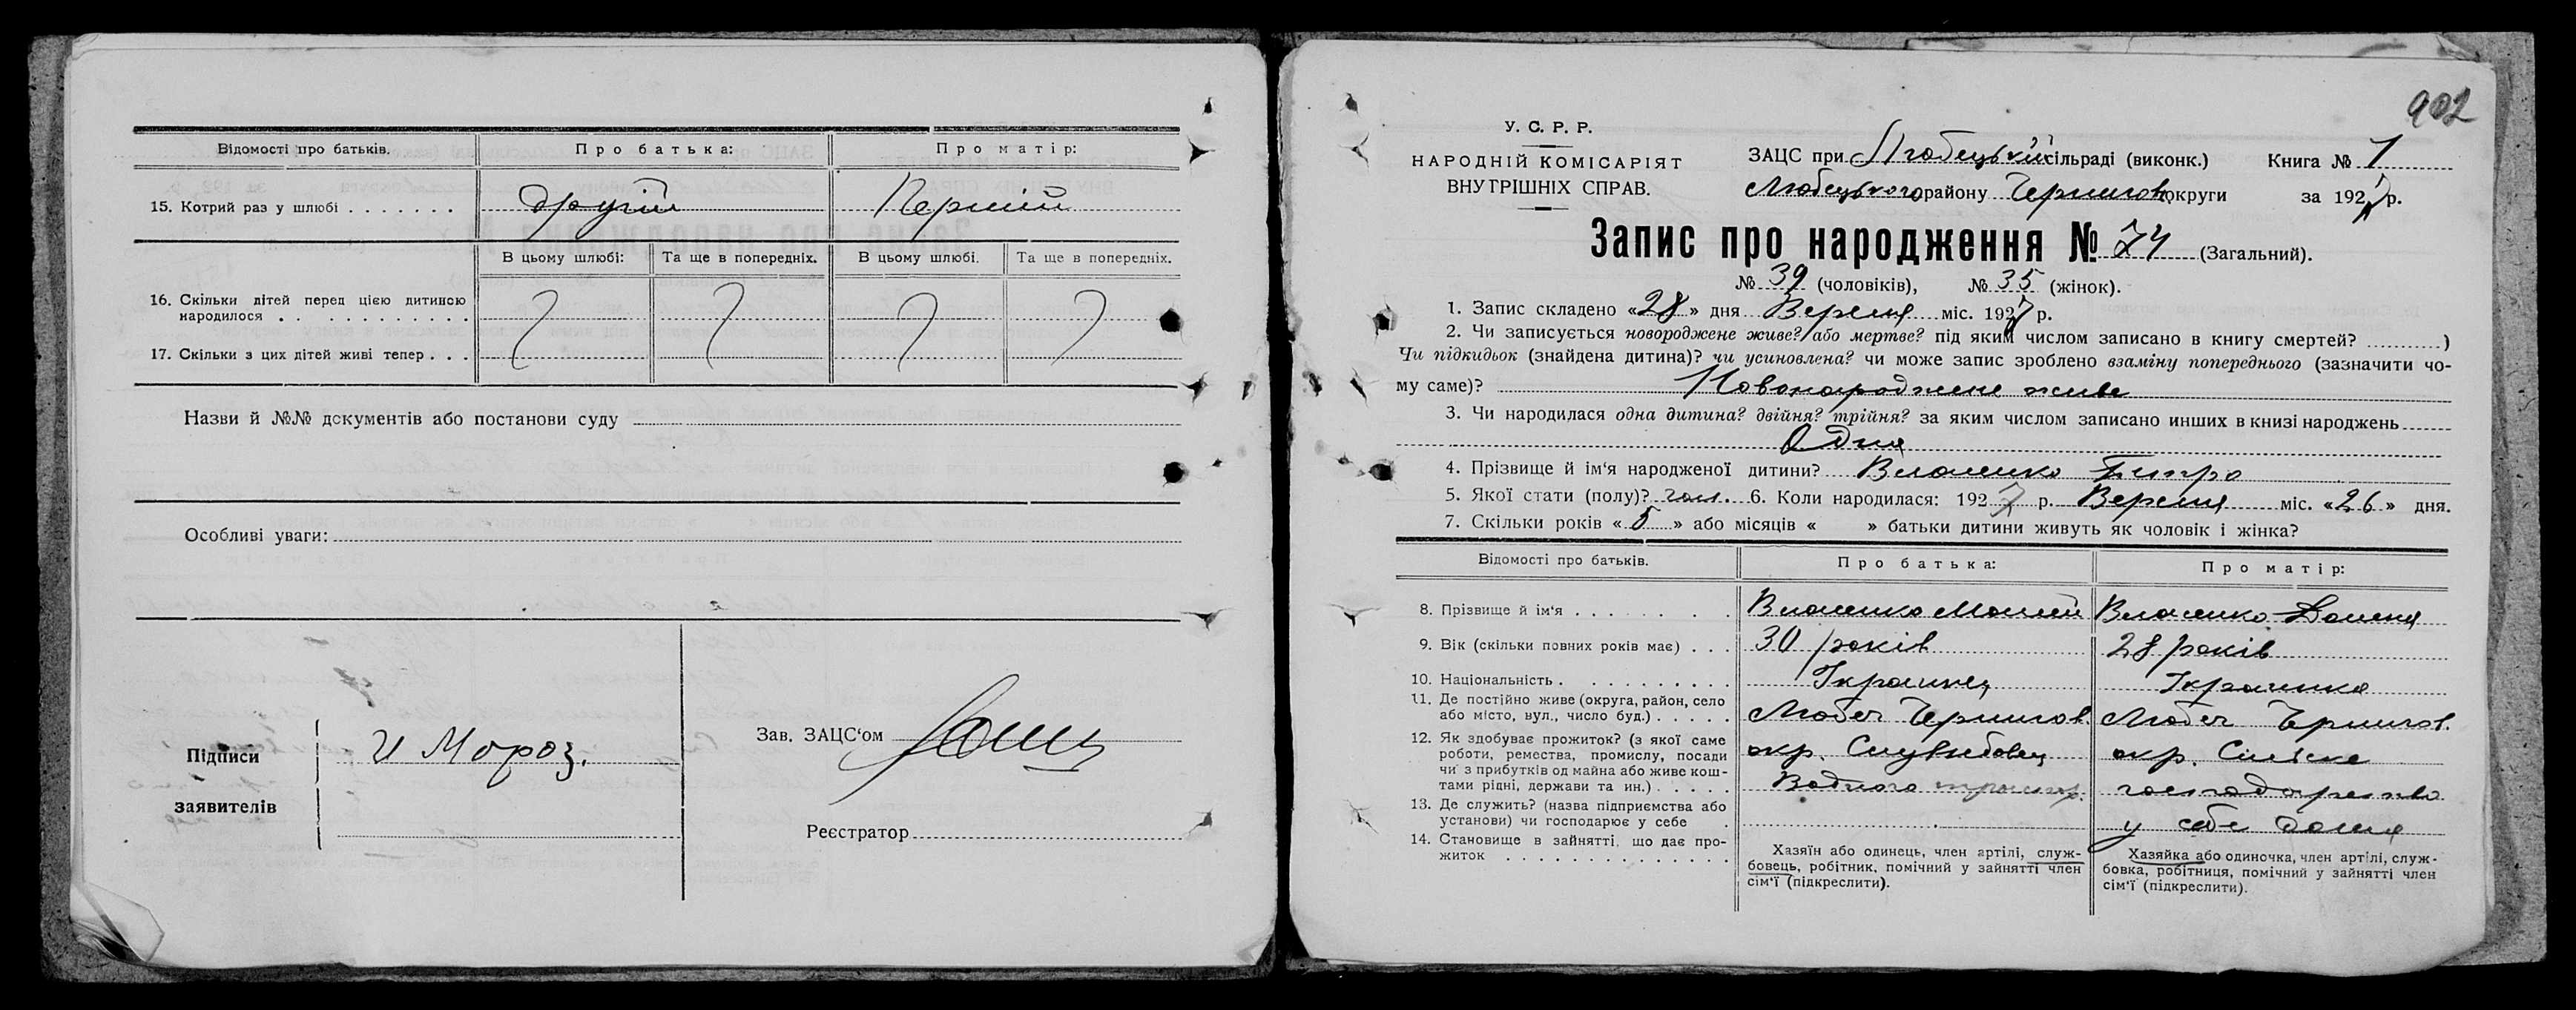 Відомості про батьків.
Про батька:
Про матір:
15. Котрий раз у шлюбі . . . . . . .
другій
Першій
В цьому шлюбі:
Та ще в попередніх.
В цьому шлюбі.
Та ще в попередніх.
16. Скільки дітей перед цією дитиною
народилося . . . . . . . . . . .
17. Скільки з цих дітей живі тепер . . .
Назви й №№ документів або постанови суду
Особливі уваги:
Підписи
заявителів
И Мороз.
Зав. ЗАЦС‘ом
Реєстратор
902
У. С. Р. Р.
НАРОДНІЙ КОМІСАРІЯТ
ВНУТРІШНІХ СПРАВ.
ЗАЦС при Любецькій сільраді (виконк.) Книга № 1
Любецького району Чернигов округи за 1927 р.
Запис про народження № 74 (Загальний).
№ 39 (чоловіків), № 35 (жінок).
1. Запис складено «28» дня Вересня міс. 1927 р.
2. Чи записується новороджене живе? або мертве? під яким числом записано в книгу смертей? ...........)
Чи підкидьок (знайдена дитина)? чи усиновлена? чи може запис зроблено взаміну попереднього (зазначити чо-
му саме)? Новонароджене живе
3. Чи народилася одна дитина? двійня? трійня? за яким числом записано инших в книзі народжень
Одна
4. Прізвище й ім‘я народженої дитини? Власенко Петро
5. Якої стати (полу)? чол. 6. Коли народилася: 1927 р. Вересня міс. «26» дня.
7. Скільки років «5» або місяців « » батьки дитини живуть як чоловік і жінка?
Відомості про батьків.
Про батька:
Про матір:
8. Прізвище й ім‘я . . . . . . . .
Власенко
Власенко Домна
9. Вік (скільки повних років має) . . .
30 років
28 років
10. Національність . . . . . . . . . .
Українец
Українка
11. Де постійно живе (округа, район, село
або місто, вул., число буд.) . . . . .
Любеч Чернигов.
Любеч Чернигов.
12. Як здобуває прожиток? (з якої саме
роботи, ремества, промислу, посади
чи з прибутків од майна або живе кош-
тами рідні, держави та ин.) . . . . .
окр. Службовец
Водного трансп.
окр. Сільске
господарство
13. Де служить? (назва підприємства або
установи) чи господарює у себе .
у себе дома
14. Становище в зайнятті, що дає про-
житок . . . . . . . . . . . . . .
Хазяїн або одинець, член артілі, служ-
бовець, робітник, помічний у зайнятті член
сім‘ї (підкреслити).
Хазяйка або одиночка, член артілі, служ-
бовка, робітниця, помічний у зайнятті член
сім‘ї (підкреслити).